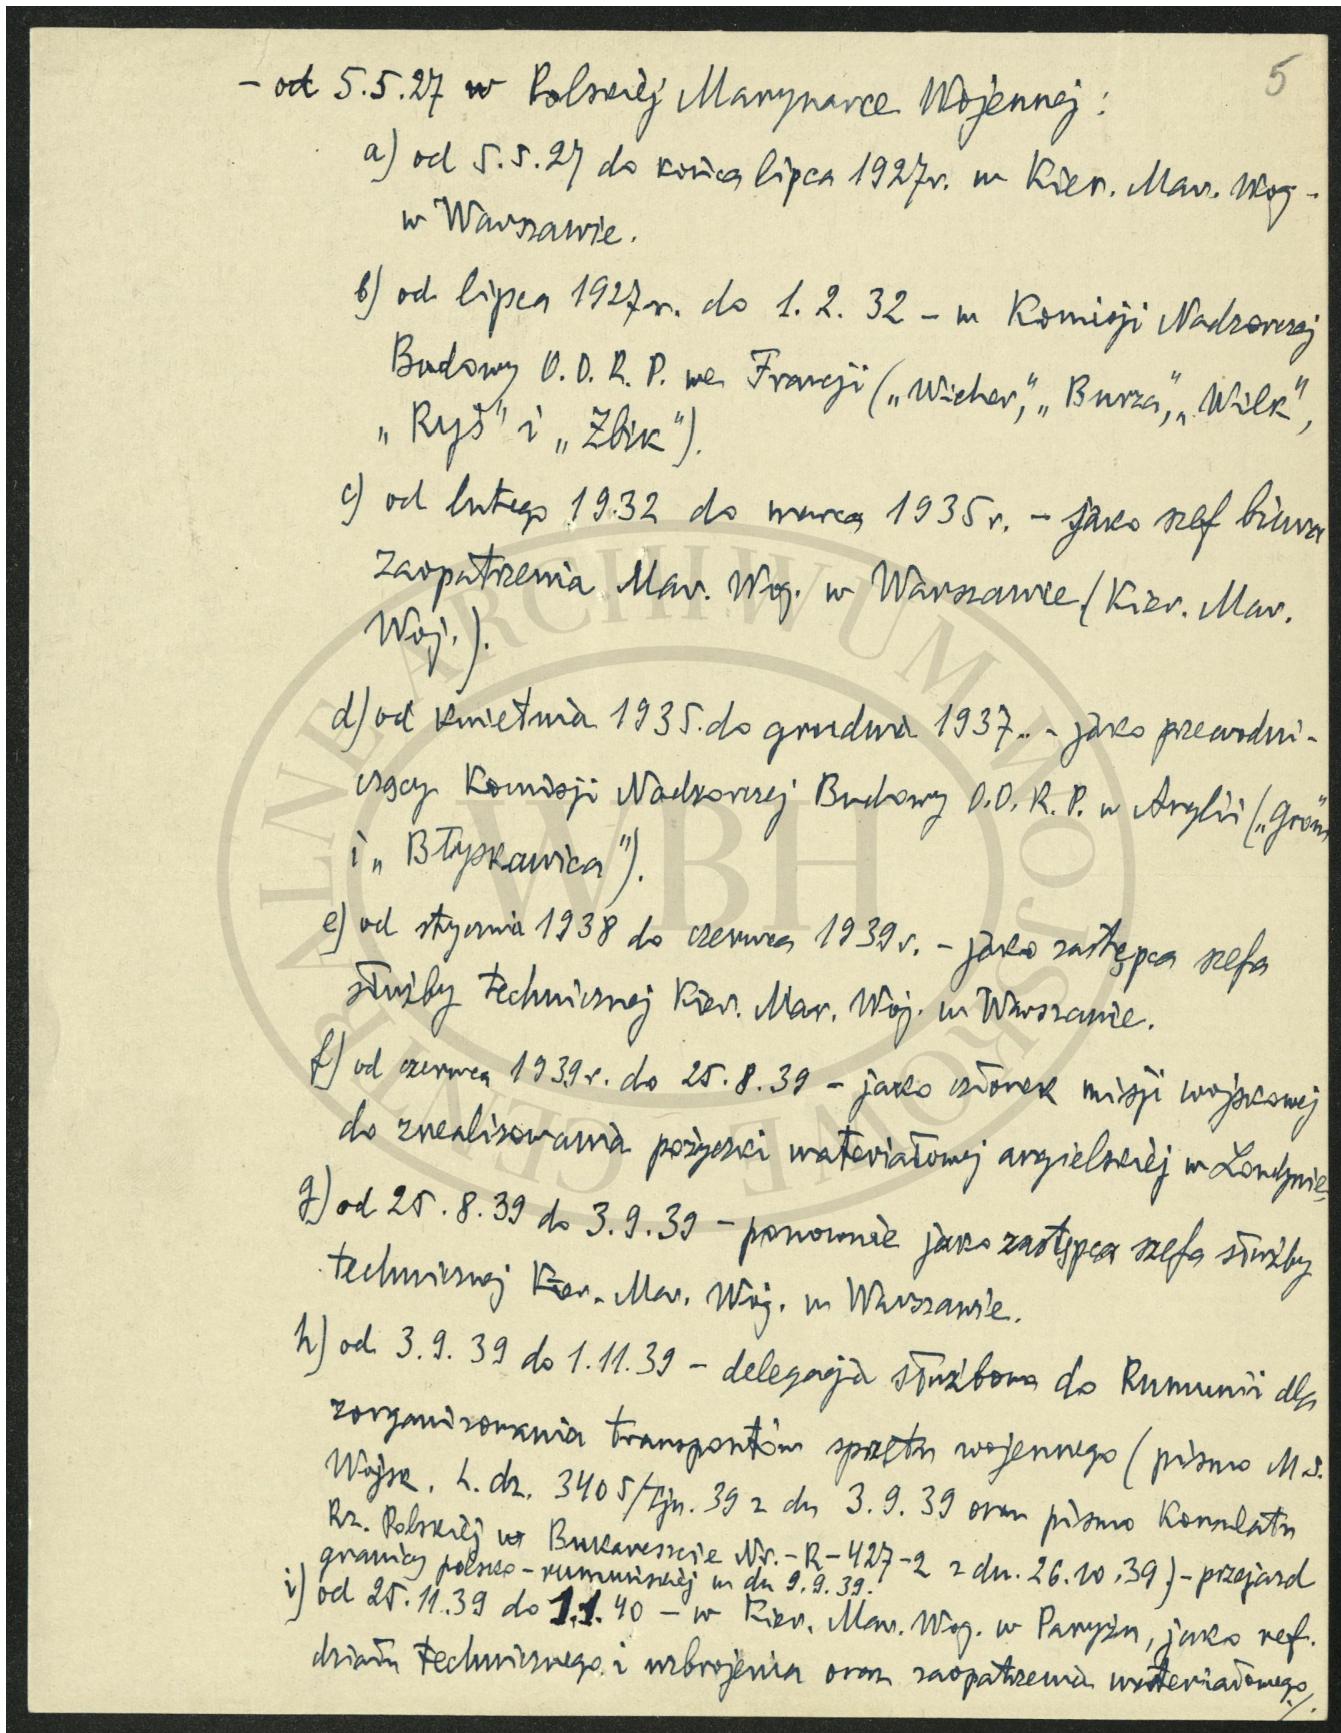 5
- od 5.5.27 w Polskiej Marynarce Wojennej:
a) od 5.5.27 do końca lipca 1927r. w Kier. Mar. Woj.
w Warszawie.
b) od lipca 1927r. do 1.2.32 - w Komisji Nadzorczej
Budowy O.O.R.P. we Francji („Wicher”, „Burza”, „Wilk”,
„Ryś” i „Żbik”).
c) od lutego 1932 do marca 1935r. - jako szef biura
zaopatrzenia Mar. Woj. w Warszawie (Kier. Mar.
Woj.).
d) od kwietnia 1935 do grudnia 1937.. - jako przewodni-
czący Komisji Nadzorczej Budowy O.O.R.P. w Anglii („Grom”
i „Błyskawica”).
e) od stycznia 1938 do czerwca 1939r. - jako zastępca szefa
służby technicznej Kier. Mar. Woj. w Warszawie.
f) od czerwca 1939r. do 25.8.39 - jako członek misji wojskowej
do zrealizowania pożyczki materiałowej angielskiej w Londynie.
g) od 25.8.39 do 3.9.39 - ponownie jako zastępca szefa służby
technicznej Kier. Mar. Woj. w Warszawie.
h) od 3.9.39 do 1.11.39 - delegacja służbowa do Rumunii dla
zorganizowania transportów sprzętu wojennego (pismo M.S.
Wojsk. L.dz. 3405/Tjn. 39 z dn 3.9.39 oraz pismo Konsulatu
Rz. Polskiej w Bukareszcie Nr.-R-427-2 z dn. 26.10.39) - przejazd
granicy polsko-rumuńskiej w dn 9.9.39.
i) od 25.11.39 do 1.1.40 - w Kier. Mar. Woj. w Paryżu, jako ref.
działu technicznego i uzbrojenia oraz zaopatrzenia materiałowego/.
CENTRALNE ARCHIWUM WOJSKOWE
WBH